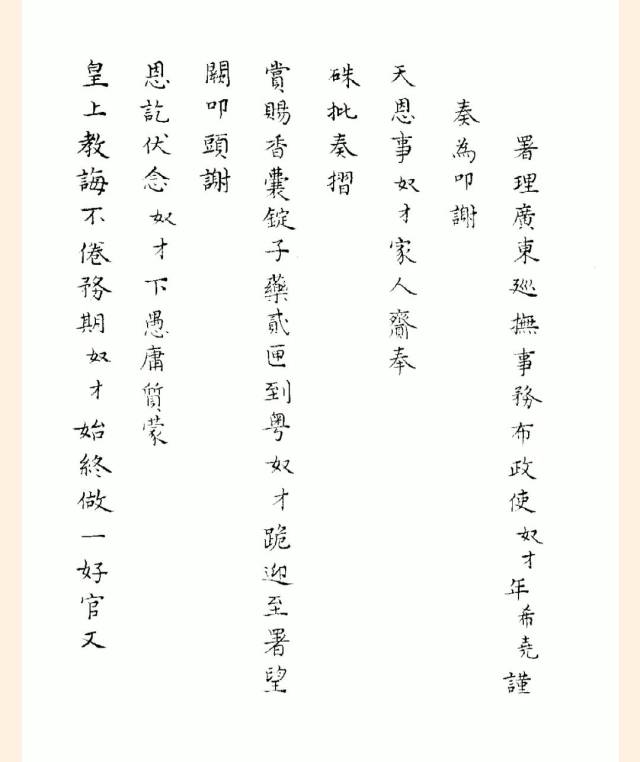 署理廣東廵撫事務布政使奴才年希堯謹
奏為叩謝
天恩事奴才家人齎奉
硃批奏摺
賞賜香囊錠子藥貳匣到粵奴才跪迎至署望
闕叩頭謝
恩訖伏念奴才下愚庸質蒙
皇上教誨不倦務期奴才始終做一好官又